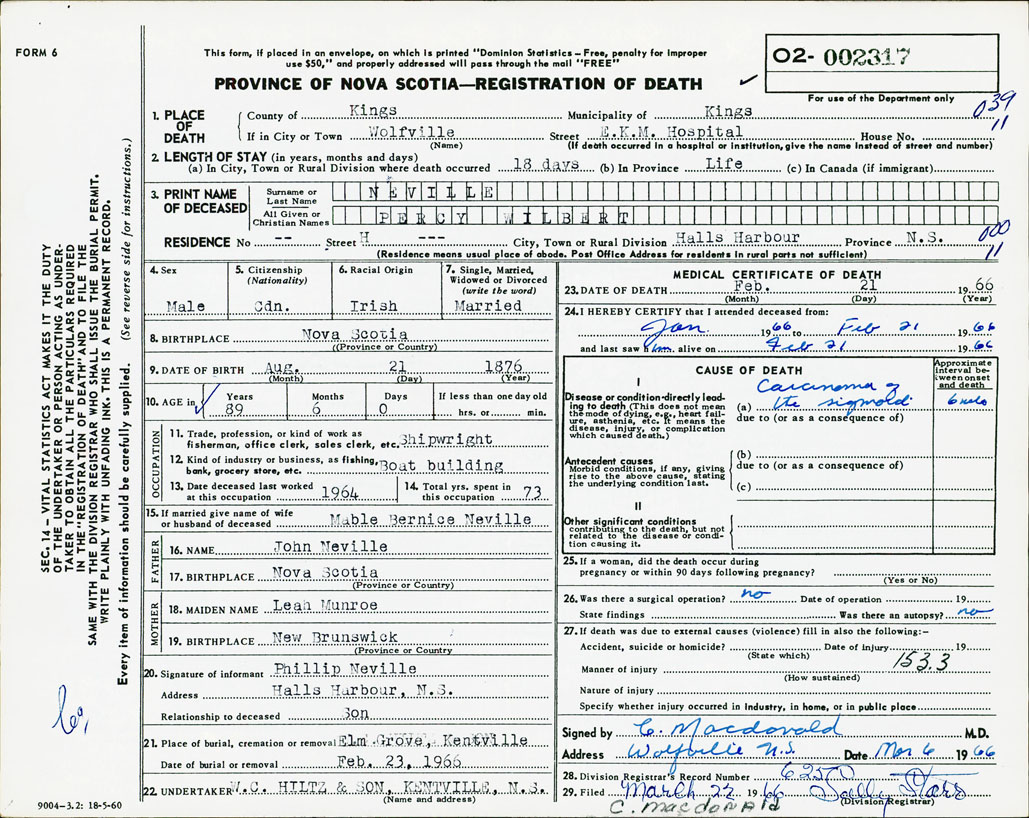 FORM 6
This form, if placed in an envelope, on which is printed "Dominion Statistics – Free, penalty for improper
use $50," and properly addressed will pass through the mail "FREE"
PROVINCE OF NOVA SCOTIA—REGISTRATION OF DEATH ✓
02- 002317
For use of the Department only
039
11
1. PLACE OF DEATH
County of Kings Municipality of Kings
If in City or Town Wolfville Street E.K.M. Hospital House No.
(Name) (If death occurred in a hospital or institution, give the name instead of street and number)
2. LENGTH OF STAY (in years, months and days)
(a) In City, Town or Rural Division where death occurred 18 days (b) In Province Life (c) In Canada (if immigrant)
3. PRINT NAME OF DECEASED
Surname or Last Name NEVILLE
All Given or Christian Names PERCY WILBERT
RESIDENCE No -- Street H --- City, Town or Rural Division Halls Harbour Province N.S.
(Residence means usual place of abode. Post Office Address for residents in rural parts not sufficient)
000
11
4. Sex Male
5. Citizenship (Nationality) Cdn.
6. Racial Origin Irish
7. Single, Married, Widowed or Divorced (write the word) Married
8. BIRTHPLACE Nova Scotia
(Province or Country)
9. DATE OF BIRTH Aug. 21 1876
(Month) (Day) (Year)
10. AGE in ✓ Years 89 Months 6 Days 0 If less than one day old hrs. or min.
OCCUPATION
11. Trade, profession, or kind of work as
fisherman, office clerk, sales clerk, etc. Shipwright
12. Kind of industry or business, as fishing,
bank, grocery store, etc. Boat building
13. Date deceased last worked at this occupation 1964
14. Total yrs. spent in this occupation 73
15. If married give name of wife
or husband of deceased Mable Bernice Neville
FATHER
16. NAME John Neville
17. BIRTHPLACE Nova Scotia
(Province or Country)
MOTHER
18. MAIDEN NAME Leah Munroe
19. BIRTHPLACE New Brunswick
(Province or Country
20. Signature of informant Phillip Neville
Address Halls Harbour, N.S.
Relationship to deceased Son
21. Place of burial, cremation or removal Elm Grove, Kentville
Date of burial or removal Feb. 23, 1966
22. UNDERTAKER W.C. HILTZ & SON, KENTVILLE, N.S.
(Name and address)
MEDICAL CERTIFICATE OF DEATH
23. DATE OF DEATH Feb. 21 1966
(Month) (Day) (Year)
24. I HEREBY CERTIFY that I attended deceased from:
Jan. 1966 to Feb 21 1966
and last saw him alive on Feb 21 1966
CAUSE OF DEATH
Approximate interval between onset and death
I
Disease or condition-directly leading to death (This does not
mean the mode of dying, e.g., heart failure, asthenia, etc. It means the
disease, injury, or complication which caused death.)
(a) Carcinoma of the sigmoid
due to (or as a consequence of)
Antecedent causes
Morbid conditions, if any, giving
rise to the above cause, stating
the underlying condition last.
(b)
due to (or as a consequence of)
(c)
II
Other significant conditions
contributing to the death, but not
related to the disease or condition causing it.
25. If a woman, did the death occur during
pregnancy or within 90 days following pregnancy?
(Yes or No)
26. Was there a surgical operation? no Date of operation 19
State findings Was there an autopsy? no
27. If death was due to external causes (violence) fill in also the following:–
Accident, suicide or homicide? Date of injury 19
(State which)
153.3
Manner of injury
(How sustained)
Nature of injury
Specify whether injury occurred in Industry, in home, or in public place
Signed by C. Macdonald M.D.
Address Wolfville N.S. Date Mar 6 1966
28. Division Registrar's Record Number 6250
29. Filed March 22 1966
(Division Registrar)
C. MacDONAld
SEC. 14 – VITAL STATISTICS ACT MAKES IT THE DUTY
OF THE UNDERTAKER OR PERSON ACTING AS UNDERTAKER TO OBTAIN ALL THE PARTICULARS REQUIRED
IN THE "REGISTRATION OF DEATH" AND TO FILE THE
SAME WITH THE DIVISION REGISTRAR WHO SHALL ISSUE THE BURIAL PERMIT.
WRITE PLAINLY WITH UNFADING INK. THIS IS A PERMANENT RECORD.
Every item of information should be carefully supplied. (See reverse side for instructions.)
9004–3.2: 18-5-60